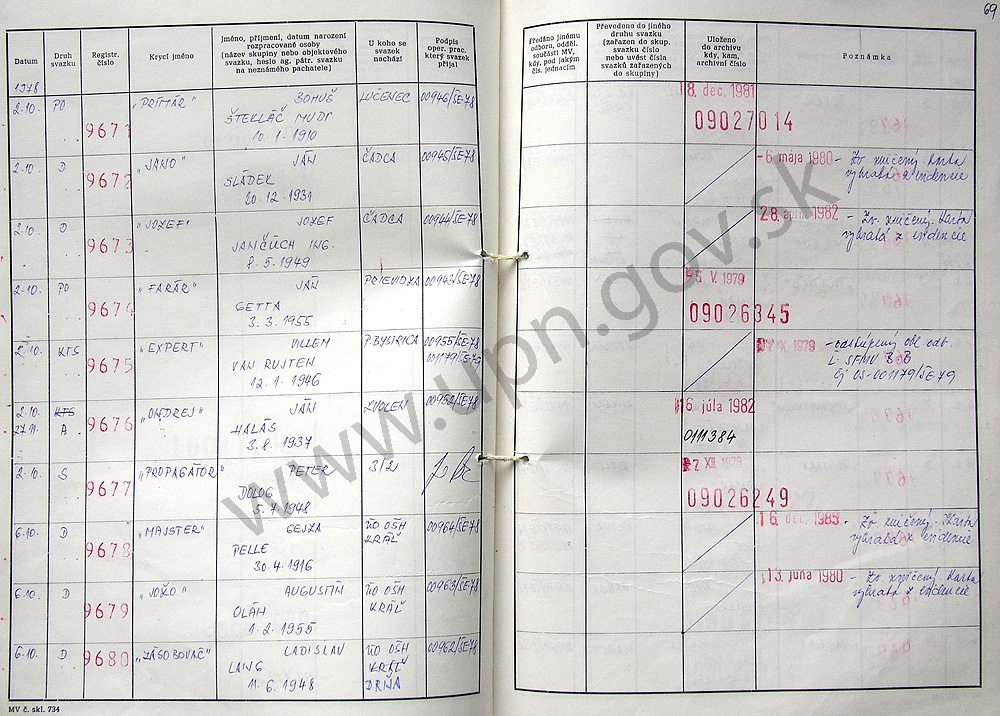 69
Datum
Druh svazku
Registr. číslo
Krycí jméno
Jméno, příjmení, datum narození
rozpracované osoby
(název skupiny nebo objektového
svazku, heslo ag. pátr. svazku
na neznámého pachatele)
U koho se
svazek
nachází
Podpis
oper. prac.
který svazek
přijal
Předáno jinému
odboru, odděl.
součásti MV,
kdy, pod jakým
čís. jednacím
Převedeno do jiného
druhu svazku
(zařazen do skup.
svazku číslo
nebo uvést čísla
svazků zařazených
do skupiny)
Uloženo
do archivu
kdy, kam,
archivní číslo
Poznámka
1978
2.10. PO 9671 „PRIMÁR" BOHUŠ LUČENEC 00946/ŠE-78 8. dec. 1981
ŠTEKLÁČ MUDr. 09027014
10.1.1910
2.10. D 9672 „JANO" JÁN ČADCA 00945/ŠE-78 -6. mája 1980 - Zv. zničený. Karta
SLÁDEK vybratá z evidencie
20.12.1931
2.10. D 9673 „JOZEF" JOZEF ČADCA 00944/ŠE-78 28. apríl 1982 - Zv. zničený. Karta
JANČÚCH ING. vybratá z evidencie
8.5.1949
2.10. PO 9674 „FARÁR" JÁN PRIEVIDZA 00943/ŠE-78 V. 1979
GETTA 09026345
3.3.1955
2.10. KTS 9675 „EXPERT" VILLEM P. BYSTRICA 00955/ŠE-78 1979 - odstúpený obl. odb.
VAN RUJTEN 001179/ŠE-79 ŠFMV B B
12.1.1946 čj OS-001179/ŠE-79
2.10. KTS 9676 „ONDREJ" JÁN ZVOLEN 00952/ŠE-78 16. júla 1982
27.11. A HALÁS 0111384
3.8.1937
2.10. S 9677 „PROPAGÁTOR" PETER 3/21 XII. 1978
DOLOG 09026249
5.7.1948
6.10. D 9678 „MAJSTER" GEJZA ÚO OŠH 00964/ŠE-78 16. dec. 1983 - Zv. zničený. Karta
PELLE KRÁĽ vybratá z evidencie
30.4.1916
6.10. D 9679 „JOŽO" AUGUSTÍN ÚO OŠH 00963/ŠE-78 13. júna 1980 - Zv. zničený. Karta
OLÁH KRÁĽ vybratá z evidencie
1.2.1955
6.10. D 9680 „ZÁSOBOVAČ" LADISLAV ÚO OŠH 00962/ŠE-78
LANG KRÁĽ
11.6.1948 DRŇA
MV č. skl. 734
www.upn.gov.sk